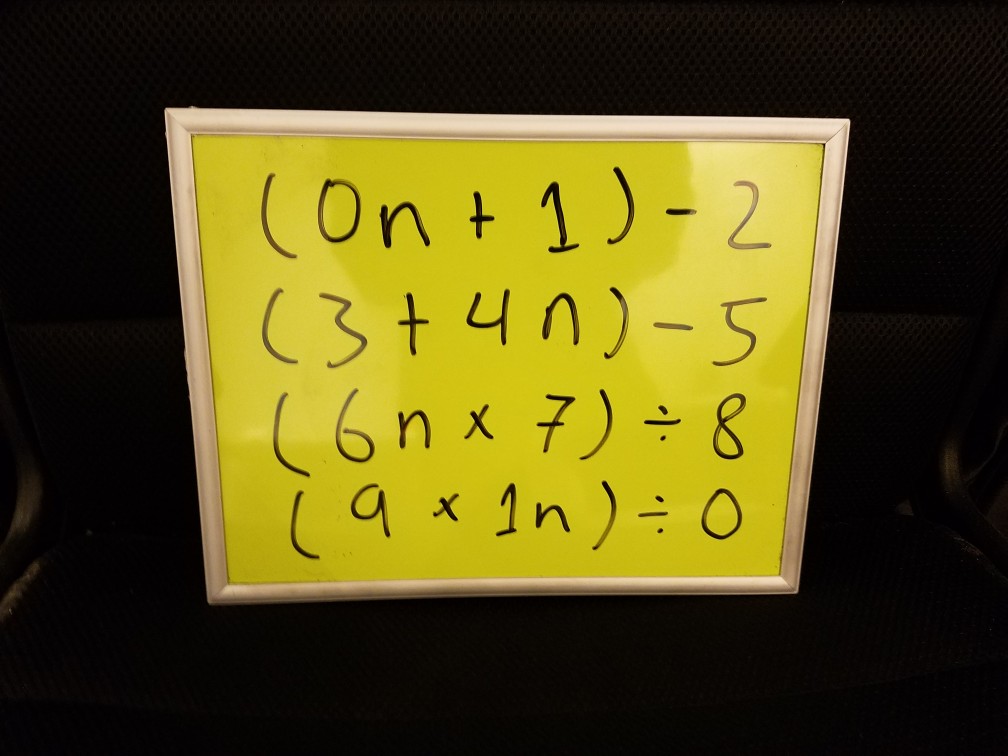 (0n + 1) - 2
(3 + 4n) - 5
(6n x 7) ÷ 8
(9 x 1n) ÷ 0